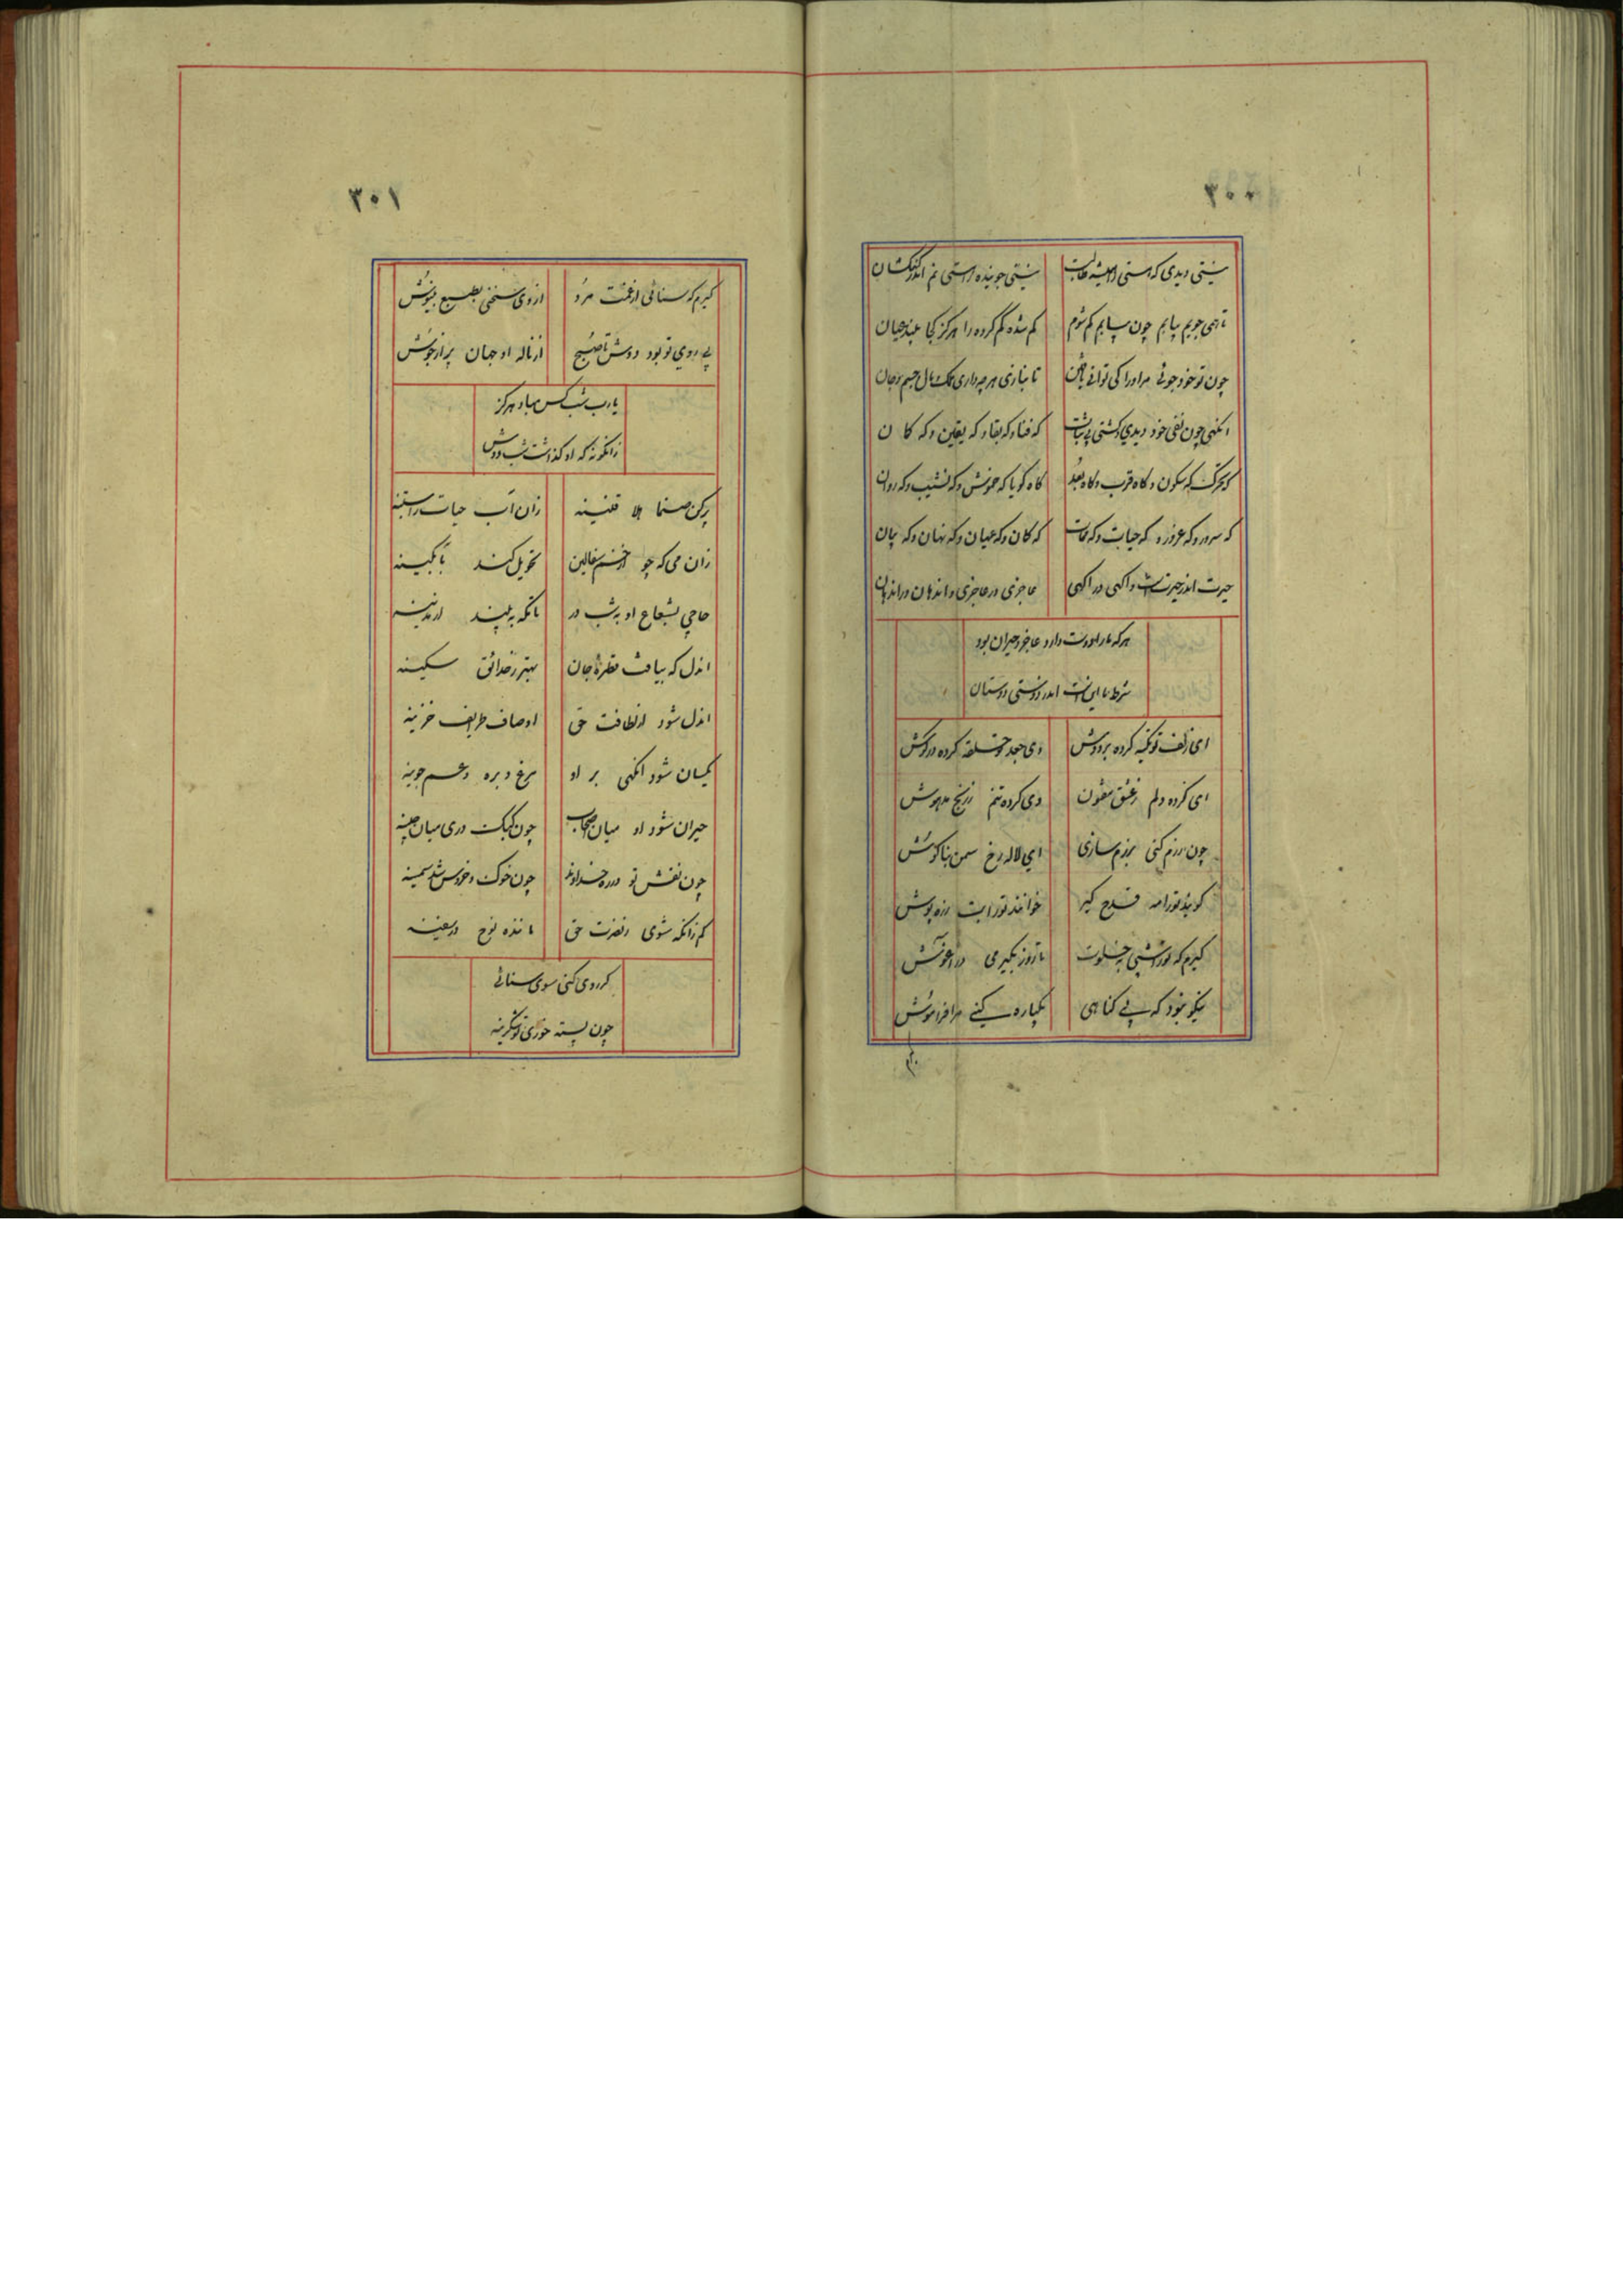 ۳۰۰
نیستی دیدی که هستی را همیشه طالبست نیستی جوینده را هستی نم اندر
تا همی جویم بیابم چون بیابم کم شوم کم شده کم کرده را هرکز کجا بیند عیان
چون تو خود جوئی مراورا کی توانی یافتن تا نبازی هرچه داری ملک و مال و جسم و جان
انکهی چون نفی خود دیدی و کشتی بی ثبات که فنا و که بقا و که یقین و که کمان
که تحرک که سکون و کاه قرب و کاه بعد کاه کویا که خموش و که نشیب و که روان
که سرور و که غرور و که حیات و که ممات که کان و که عیان و که نهان و که بیان
حیرت اندر حیرتست و اکهی در اکهی عاجزی در عاجزی و اندهان در اندهان
هرکه ما را دوست دارد عاجز و حیران بود
شرط ما اینست اندر دوستی دوستان
ای زلف تو تکیه کرده بر دوش وی جعد تو حلقه کرده در کوش
ای کرده دلم ز عشق مفتون وی کرده تنم ز رنج مدهوش
چون رزم کنی و بزم سازی ای لاله رخ سمن بناکوش
کویند تورا مه قدح کیر خوانند تورا بت زره پوش
کیرم که تورا شبی بخلوت تا روز بکیرمی در اغوش
نیکو نبود که بی کناهی یکباره کنی مرا فراموش
۳۰۱
کیرم که سنائی از غمت مرد از وی سخنی بطبع بنیوش
بی روی تو بود دوش تا صبح از ناله او جهان پر از جوش
یارب شب کس مباد هرکز
زانکونه که او کذاشت شب دوش
پر کن صنما هلا قنینه زان آب حیات راستینه
زان می که چو از خم سفالین تحویل کند بآبکینه
حاجی بشعاع او بشب در با مکه به بیند از مدینه
اندل که بیافت قطره جان بهتر ز حدائق سکینه
اندل شود از لطافت حق اوصاف ظریف خزینه
یکسان شود انکهی بر او مرغ و بره و عسم جوینه
حیران شود او میان اصحاب چون کبک دری میان چینه
چون نفش تو در ره خداوند چون خوک و خروس شد سمینه
کم زانکه شوی ز نصرت حق ماننده نوح در سفینه
کر روی کنی سوی سنائی
چون پسته خوری تو کزینه